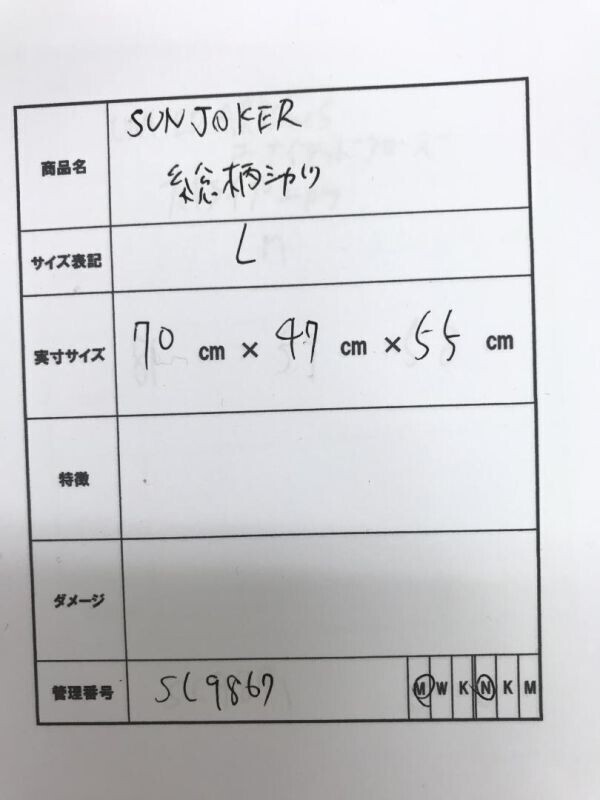 商品名
SUN JOKER
総柄シャツ
サイズ表記
L
実寸サイズ
70 cm × 47 cm × 55 cm
特徴
ダメージ
管理番号
SC9867
M W K N K M